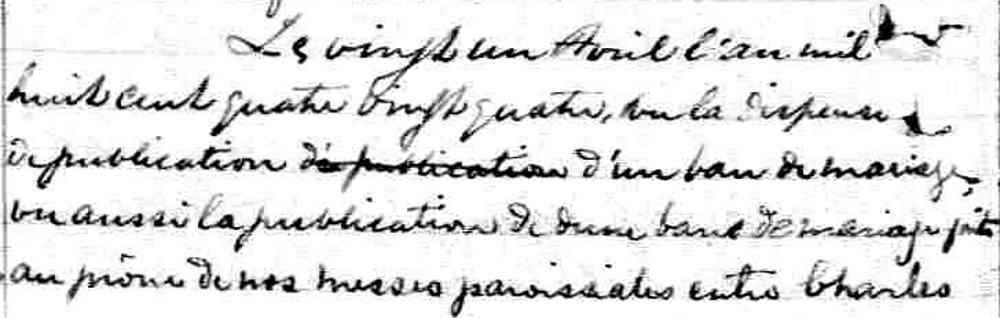 Le vingt un Avril l'an mil
huit cent quatre vingt quatre, vu la dispense
de publication de publication d'un ban de mariage,
vu aussi la publication de deux bans de mariage faite
au prône de nos messes paroissiales entre Charles